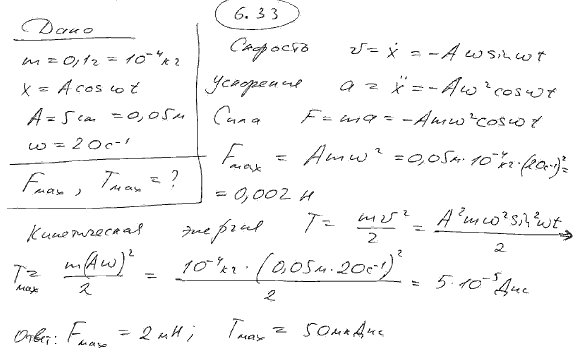 6.33
Дано
m = 0,1г = 10⁻⁴ кг
x = A cos ωt
A = 5 см = 0,05 м
ω = 20 с⁻¹
F max , T max = ?
Скорость v = ẋ = -Aω sin ωt
Ускорение a = ẍ = -Aω² cos ωt
Сила F = ma = -Amω² cos ωt
F max = Amω² = 0,05 м · 10⁻⁴ кг · (20 с⁻¹)² =
= 0,002 Н
Кинетическая энергия T = mv²/2 = A²mω² sin² ωt/2 →
T max = m(Aω)²/2 = 10⁻⁴ кг · (0,05 м · 20 с⁻¹)²/2 = 5·10⁻⁵ Дж
Ответ: F max = 2 мН ; T max = 50 мкДж